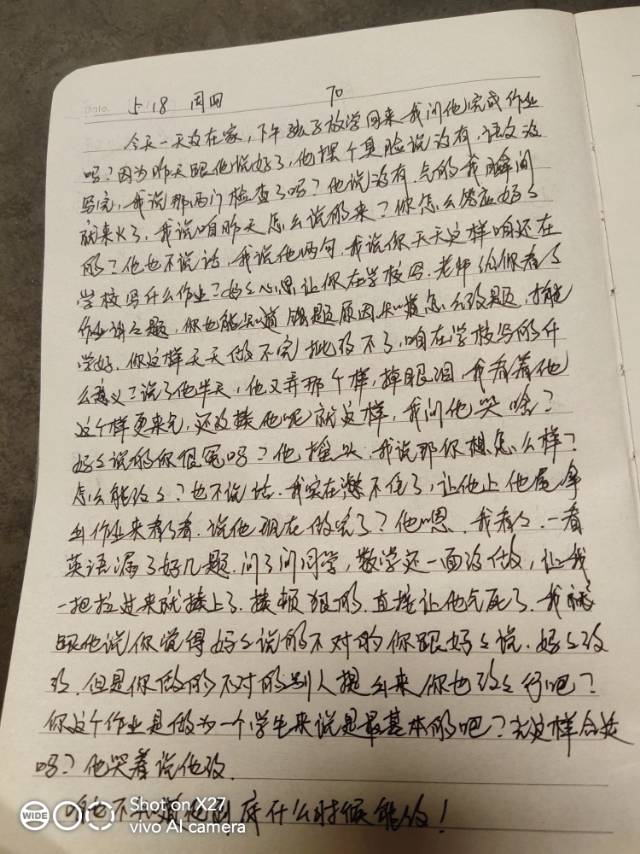 Date.
5.18 周四 70
今天一天没在家,下午孩子放学回来,我问他完成作业
吗?因为昨天跟他说好了,他摆个臭脸说没有,语文没
写完,我说那两门检查了吗?他说没有,气的我瞬间
就来火了,我说咱昨天怎么说的来?你怎么答应好了
的?他也不说话,我说他两句,我说你天天这样咱还在
学校写什么作业?好心思让你在学校写,老师给你看了
作业讲讲题,你也能知道错题原因知道怎么改题,才能
学好,你这样天天做不完批改不了,咱在学校写的什
么意义?说了他半天,他又弄那个样,掉眼泪,我看着他
这个样更来气,还没揍他呢就这样,我问他哭啥?
好好说的你很冤吗?他摇头,我说那你想怎么样?
怎么能改?也不说话,我实在憋不住了,让他上他屋拿
出作业来看看,说他现在做完了?他嗯,我看看,一看
英语漏了好几题,问了问同学,数学还一面没做,让我
一把拉过来就揍上了,揍顿狠的,直接让他气死了,我就
跟他说你觉得好好说的不对的你跟好好说,好好改
改,但是你做的不对的别人提出来你也改改行吧?
你这个作业是做为一个学生来说是最基本的吧?去这样合适
吗?他哭着说他改,
咱也不知道他到底什么时候能改!
WIDE
Shot on X27
vivo AI camera